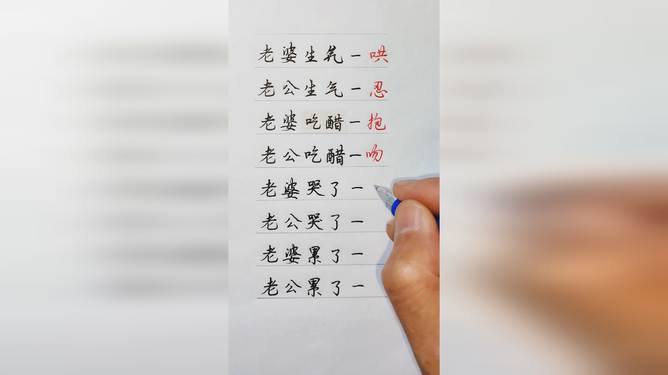 老婆生气一哄
老公生气一忍
老婆吃醋一抱
老公吃醋一吻
老婆哭了一
老公哭了一
老婆累了一
老公累了一